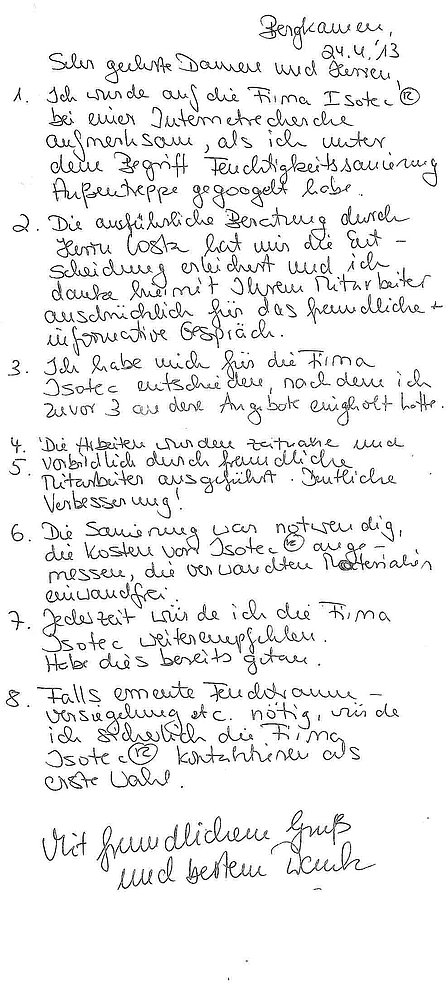 Bergkamen,
24.4.'13
Sehr geehrte Damen und Herren,
1. Ich wurde auf die Firma Isotec ®
bei einer Internetrecherche
aufmerksam, als ich unter
dem Begriff Feuchtigkeitssanierung
Außentreppe gegoogelt habe.
2. Die ausführliche Beratung durch
Herrn hat mir die Ent-
scheidung erleichert und ich
danke hiermit Ihrem Mitarbeiter
ausdrücklich für das freundliche +
informative Gespräch.
3. Ich habe mich für die Firma
Isotec entschieden, nachdem ich
zuvor 3 andere Angebote eingholt hatte.
4. Die Arbeiten wurden zeitnahe und
5. vorbildlich durch freundliche
Mitarbeiter ausgeführt. Deutliche
Verbesserung!
6. Die Sanierung war notwendig,
die Kosten von Isotec ® ange-
messen, die verwandten Materialien
einwandfrei.
7. Jederzeit würde ich die Firma
Isotec weiterempfehlen.
Habe dies bereits getan.
8. Falls erneute Feuchtraum-
versiegelung etc. nötig, würde
ich sicherlich die Firma
Isotec ® kontaktieren als
erste Wahl.
Mit freundlichem Gruß
und bestem Dank